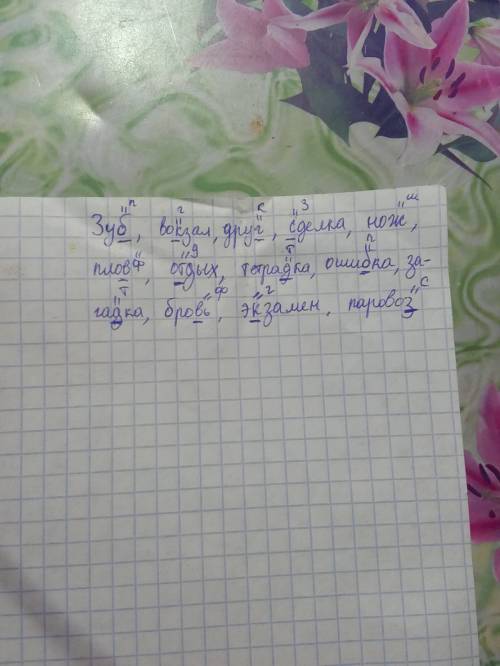 п г к з ш
Зуб, вокзал, друг, сделка, нож,
ф д т п
плов, отдых, тетрадка, ошибка, за-
т ф г с
гадка, бровь, экзамен, паровоз